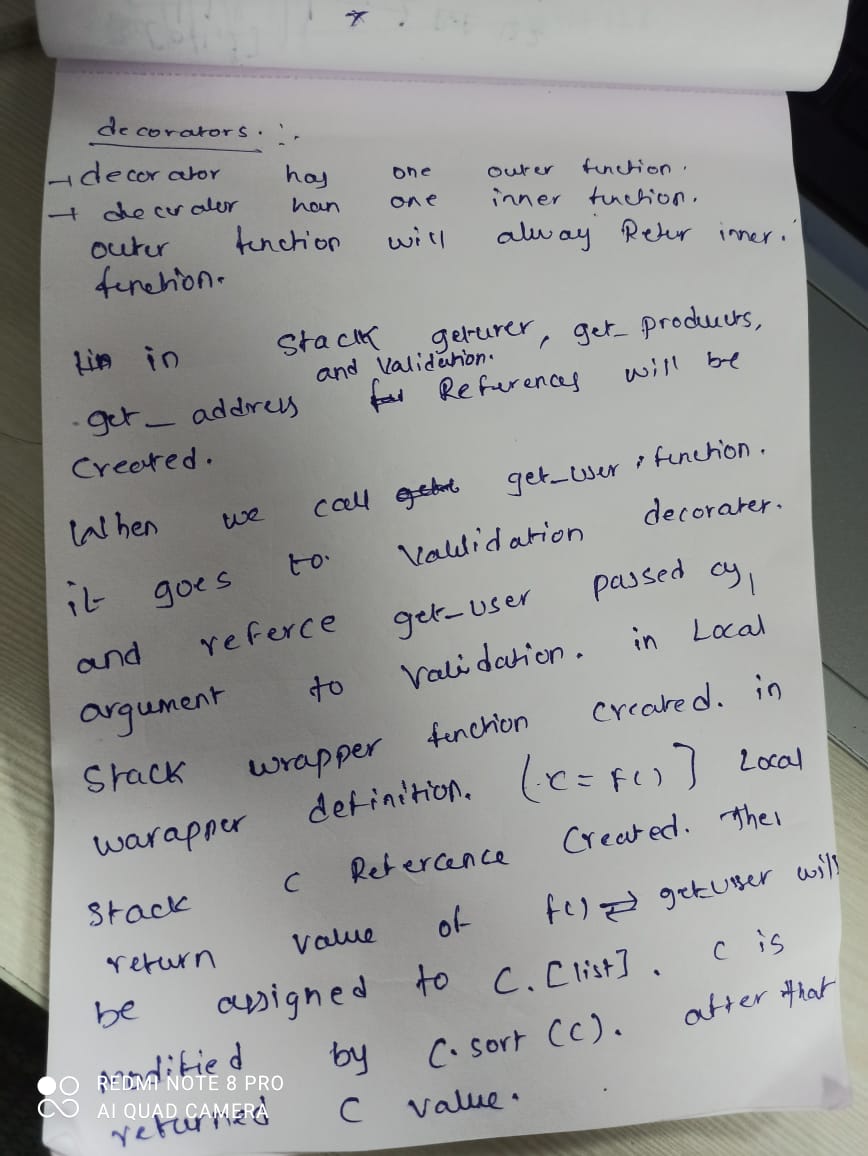 decorators. :.
→ decorator has one outer function.
→ decorator han one inner function.
outer function will alway Retur inner.
function.
in Stack getuser, get_products,
and Validation.
. get_address References will be
Created.
When we call get_user function.
it goes to validation decorater.
and referce get_user passed as
argument to Validation. in Local
Stack wrapper function created. in
warapper definition. (c = f()] Local
Stack C Reference Created. The
return value of f() ⇄ getuser will
be assigned to C. [list]. C is
modified by C.sort (C). after that
returned C value.
REDMI NOTE 8 PRO
AI QUAD CAMERA